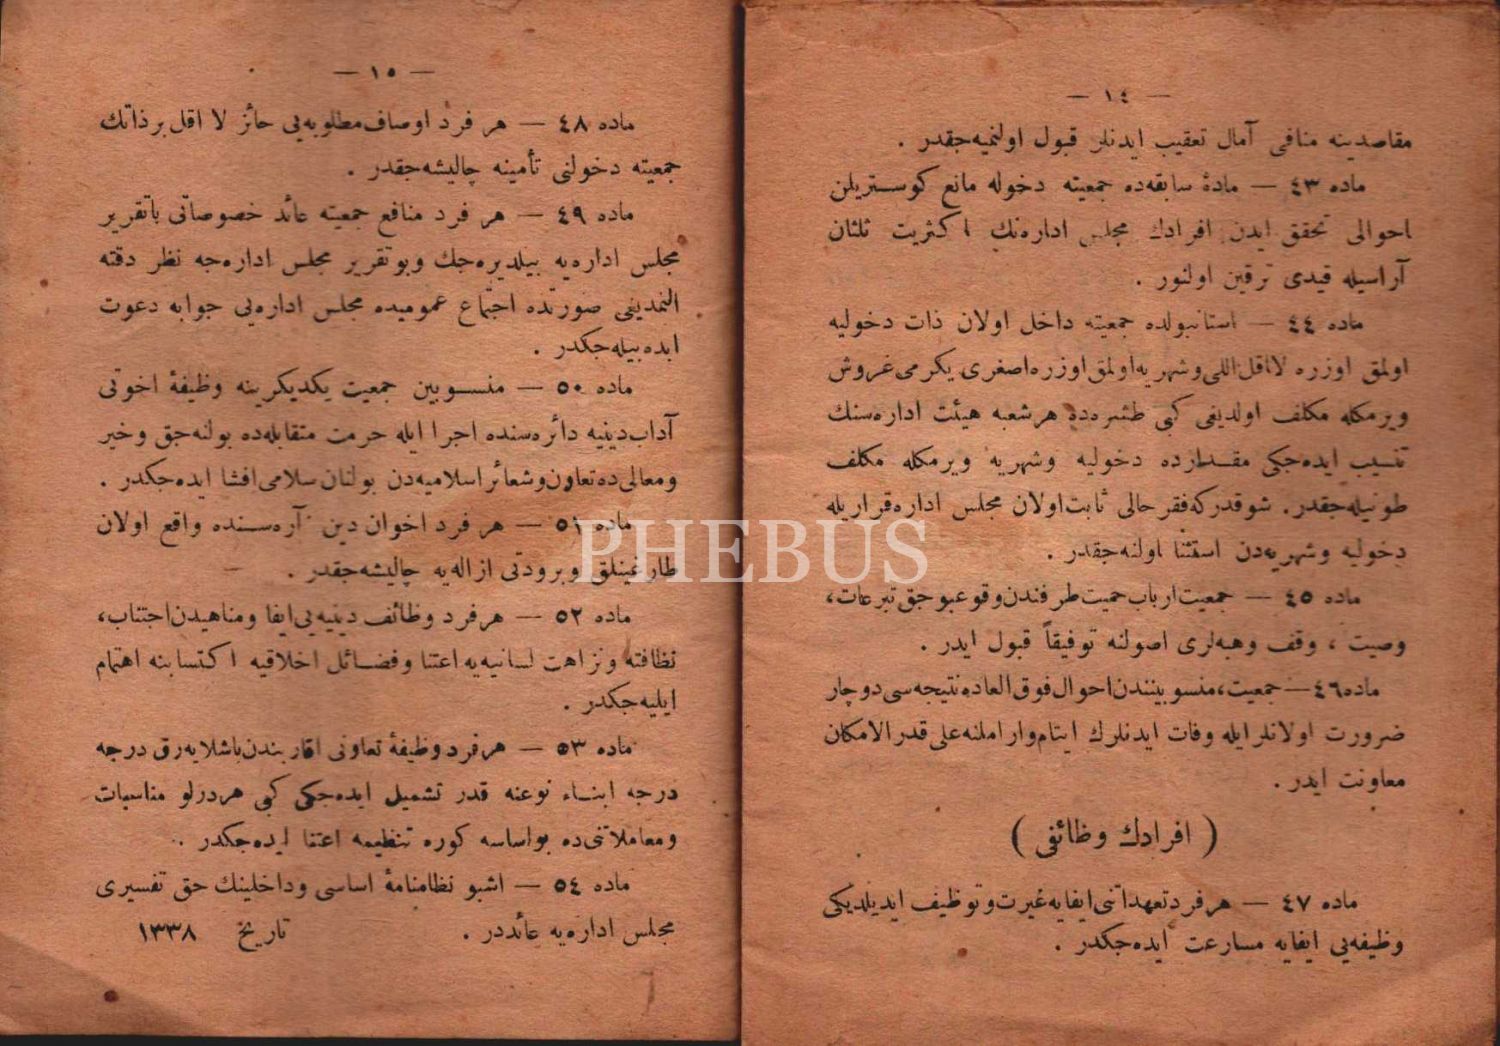 — ١٤ —
مقاصدينه منافى آمال تعقيب ايدنلر قبول اولنميه‌جقدر .
ماده ٤٣ — مادهٔ سابقه‌ده جمعيته دخوله مانع كوستريلن
احوالى تحقق ايدن افرادك مجلس اداره‌نك اكثريت ثلثان
آراسيله قيدى ترقين اولنور .
ماده ٤٤ — استانبولده جمعيته داخل اولان ذات دخوليه
اولمق اوزره لااقل اللى و شهريه اولمق اوزره اصغرى يكرمى غروش
ويرمكله مكلف اولديغى كبى طشره‌ده هر شعبه هيئت اداره‌سنك
تنسيب ايده‌جكى مقدارده دخوليه وشهريه ويرمكله مكلف
طوتيله‌جقدر. شو قدركه فقر حالى ثابت اولان مجلس اداره قراريله
دخوليه وشهريه‌دن استثنا اولنه‌جقدر .
ماده ٤٥ — جمعيت ارباب حميت طرفندن وقوعبولجق تبرعات،
وصيت ، وقف وهبه‌لرى اصولنه توفيقاً قبول ايدر .
ماده ٤٦ — جمعيت، منسوبيتندن احوال فوق العاده نتيجه‌سى دوچار
ضرورت اولانلر ايله وفات ايدنلرك ايتام وارامله‌نه على قدر الامكان
معاونت ايدر .
( افرادك وظائفى )
ماده ٤٧ — هر فرد تعهداتنى ايفايه غيرت و توظيف ايديلديكى
وظيفه‌يى ايفايه مسارعت ايده‌جكدر .
— ١٥ —
ماده ٤٨ — هر فرد اوصاف مطلوبه‌يى حائز لا اقل بر ذاتك
جمعيته دخولنى تأمينه چاليشه‌جقدر .
ماده ٤٩ — هر فرد منافع جمعيته عائد خصوصاتى باتقرير
مجلس اداره‌يه بيلديره‌جك وبو تقرير مجلس اداره‌جه نظر دقته
النمديغى صورتده اجتماع عموميده مجلس اداره‌يى جوابه دعوت
ايده‌بيله‌جكدر .
ماده ٥٠ — منسوبين جمعيت يكديكرينه وظيفهٔ اخوتى
آداب دينيه دائره‌سنده اجرا ايله حرمت متقابله‌ده بولنه‌جق و خير
ومعالى‌ده تعاون وشعائر اسلاميه‌دن بولنان سلامى افشا ايده‌جكدر .
ماده ٥١ — هر فرد اخوان دين آره‌سنده واقع اولان
طارغينلق و برودتى ازاله‌يه چاليشه‌جقدر .
ماده ٥٢ — هر فرد وظائف دينيه‌يى ايفا ومناهيدن اجتناب،
نظافته ونزاهت لسانيه‌يه اعتنا وفضائل اخلاقيه اكتسابنه اهتمام
ايليه‌جكدر .
ماده ٥٣ — هر فرد وظيفهٔ تعاونى اقاربندن باشلايه‌رق درجه
درجه ابناء نوعنه قدر تشميل ايده‌جكى كبى هردرلو مناسبات
ومعاملاتنى‌ده بو اساسه كوره تنظيمه اعتنا ايده‌جكدر .
ماده ٥٤ — اشبو نظامنامهٔ اساسى وداخلينك حق تفسيرى
مجلس اداره‌يه عائددر . تاريخ ١٣٣٨
PHEBUS